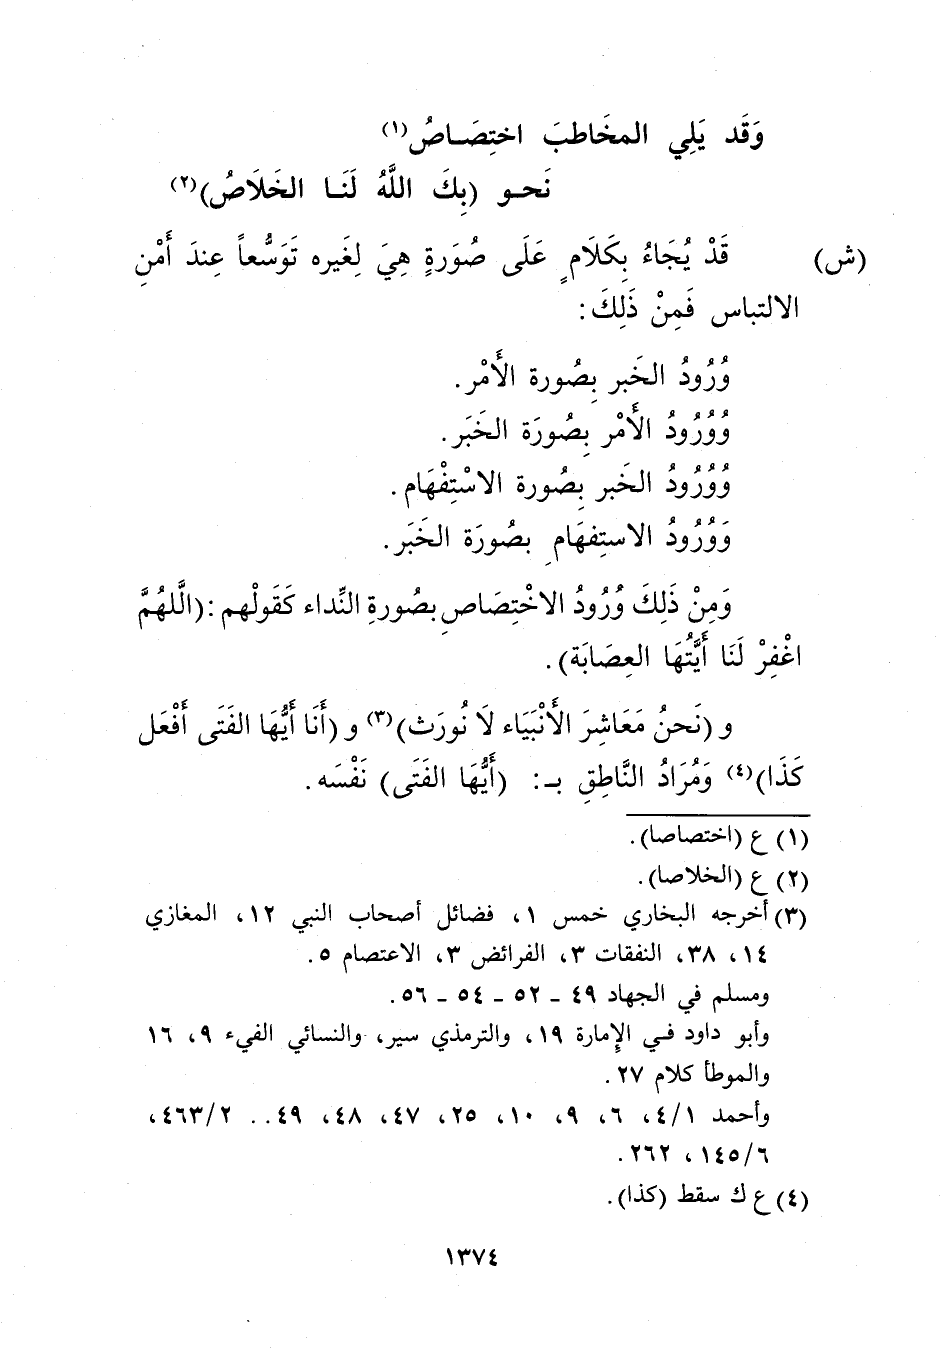 وَقَد يَلِي المخَاطبَ اختِصَـاصُ(١)
نَحـو (بِكَ اللَّهُ لَنَـا الخَلَاصُ)(٢)
(ش) قَدْ يُجَاءُ بِكَلَامٍ عَلَى صُوَرَةٍ هِيَ لِغَيره تَوَسُّعاً عِندَ أَمْنِ
الالتباس فَمِنْ ذَلِكَ:
وُرُودُ الخَبر بِصُورة الأَمْر.
وُوُرُودُ الأَمْر بِصُورَة الخَبَر.
وُوُرُودُ الخَبر بِصُورة الاسْتِفْهَام.
وَوُرُودُ الاستِفهَامِ بصُورَة الخَبَر.
وَمِنْ ذَلِكَ وُرُودُ الاخْتِصَاصِ بصُورةِ النِّداء كَقَولْهم: (الَّلهُمَّ
اغْفِرْ لَنَا أَيَّتُهَا العِصَابَة).
و (نَحنُ مَعَاشِرَ الأَنْبَيَاء لَا نُورَث)(٣) و (أَنَا أَيُّهَا الفَتَى أَفْعَل
كَذَا)(٤) وَمُرَادُ النَّاطِقِ بـ: (أَيُّهَا الفَتَى) نَفْسَه.
(١) ع (اختصاصا).
(٢) ع (الخلاصا).
(٣) أخرجه البخاري خمس ١، فضائل أصحاب النبي ١٢، المغازي
١٤، ٣٨، النفقات ٣، الفرائض ٣، الاعتصام ٥.
ومسلم في الجهاد ٤٩ ـ ٥٢ ـ ٥٤ ـ ٥٦.
وأبو داود فـي الإمارة ١٩، والترمذي سير، والنسائي الفيء ٩، ١٦
والموطأ كلام ٢٧.
وأحمد ٤/١، ٦، ٩، ١٠، ٢٥، ٤٧، ٤٨، ٤٩.. ٤٦٣/٢،
١٤٥/٦، ٢٦٢.
(٤) ع ك سقط (كذا).
١٣٧٤